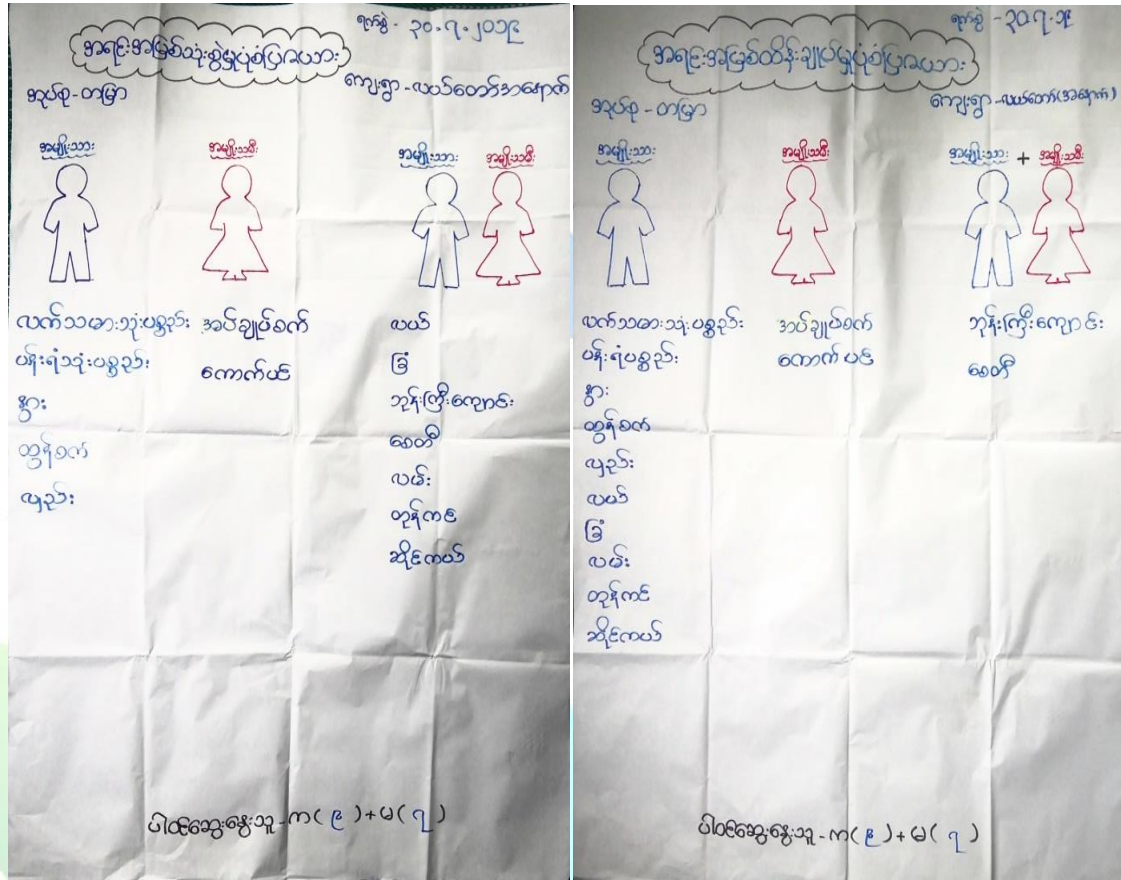 ရက်စွဲ - ၃၀.၇.၂၀၁၉
အရင်းအမြစ်သုံးစွဲမှုပုံစံပြဇယား
အုပ်စု - တမြာ
ကျေးရွာ - လယ်တော်အနောက်
အမျိုးသား
အမျိုးသမီး
အမျိုးသား အမျိုးသမီး
လက်သမားသုံးပစ္စည်း
ပန်းရံသုံးပစ္စည်း
နွား
ထွန်စက်
လှည်း
အပ်ချုပ်စက်
ကောက်ပင်
လယ်
ခြံ
ဘုန်းကြီးကျောင်း
စေတီ
လမ်း
ဖုန်ကင်
ဆိုင်ကယ်
ပါဝင်ဆွေးနွေးသူ - က(၉)+မ(၇)
ရက်စွဲ - ၃၀.၇.၁၉
အရင်းအမြစ်ထိန်းချုပ်မှုပုံစံပြဇယား
အုပ်စု - တမြာ
ကျေးရွာ - လယ်တော်(အနောက်)
အမျိုးသား
အမျိုးသမီး
အမျိုးသား + အမျိုးသမီး
လက်သမားသုံးပစ္စည်း
ပန်းရံပစ္စည်း
နွား
ထွန်စက်
လှည်း
လယ်
ခြံ
လမ်း
တုန်ကင်
ဆိုင်ကယ်
အပ်ချုပ်စက်
ကောက်ပင်
ဘုန်းကြီးကျောင်း
စေတီ
ပါဝင်ဆွေးနွေးသူ - က(၉)+မ(၇)